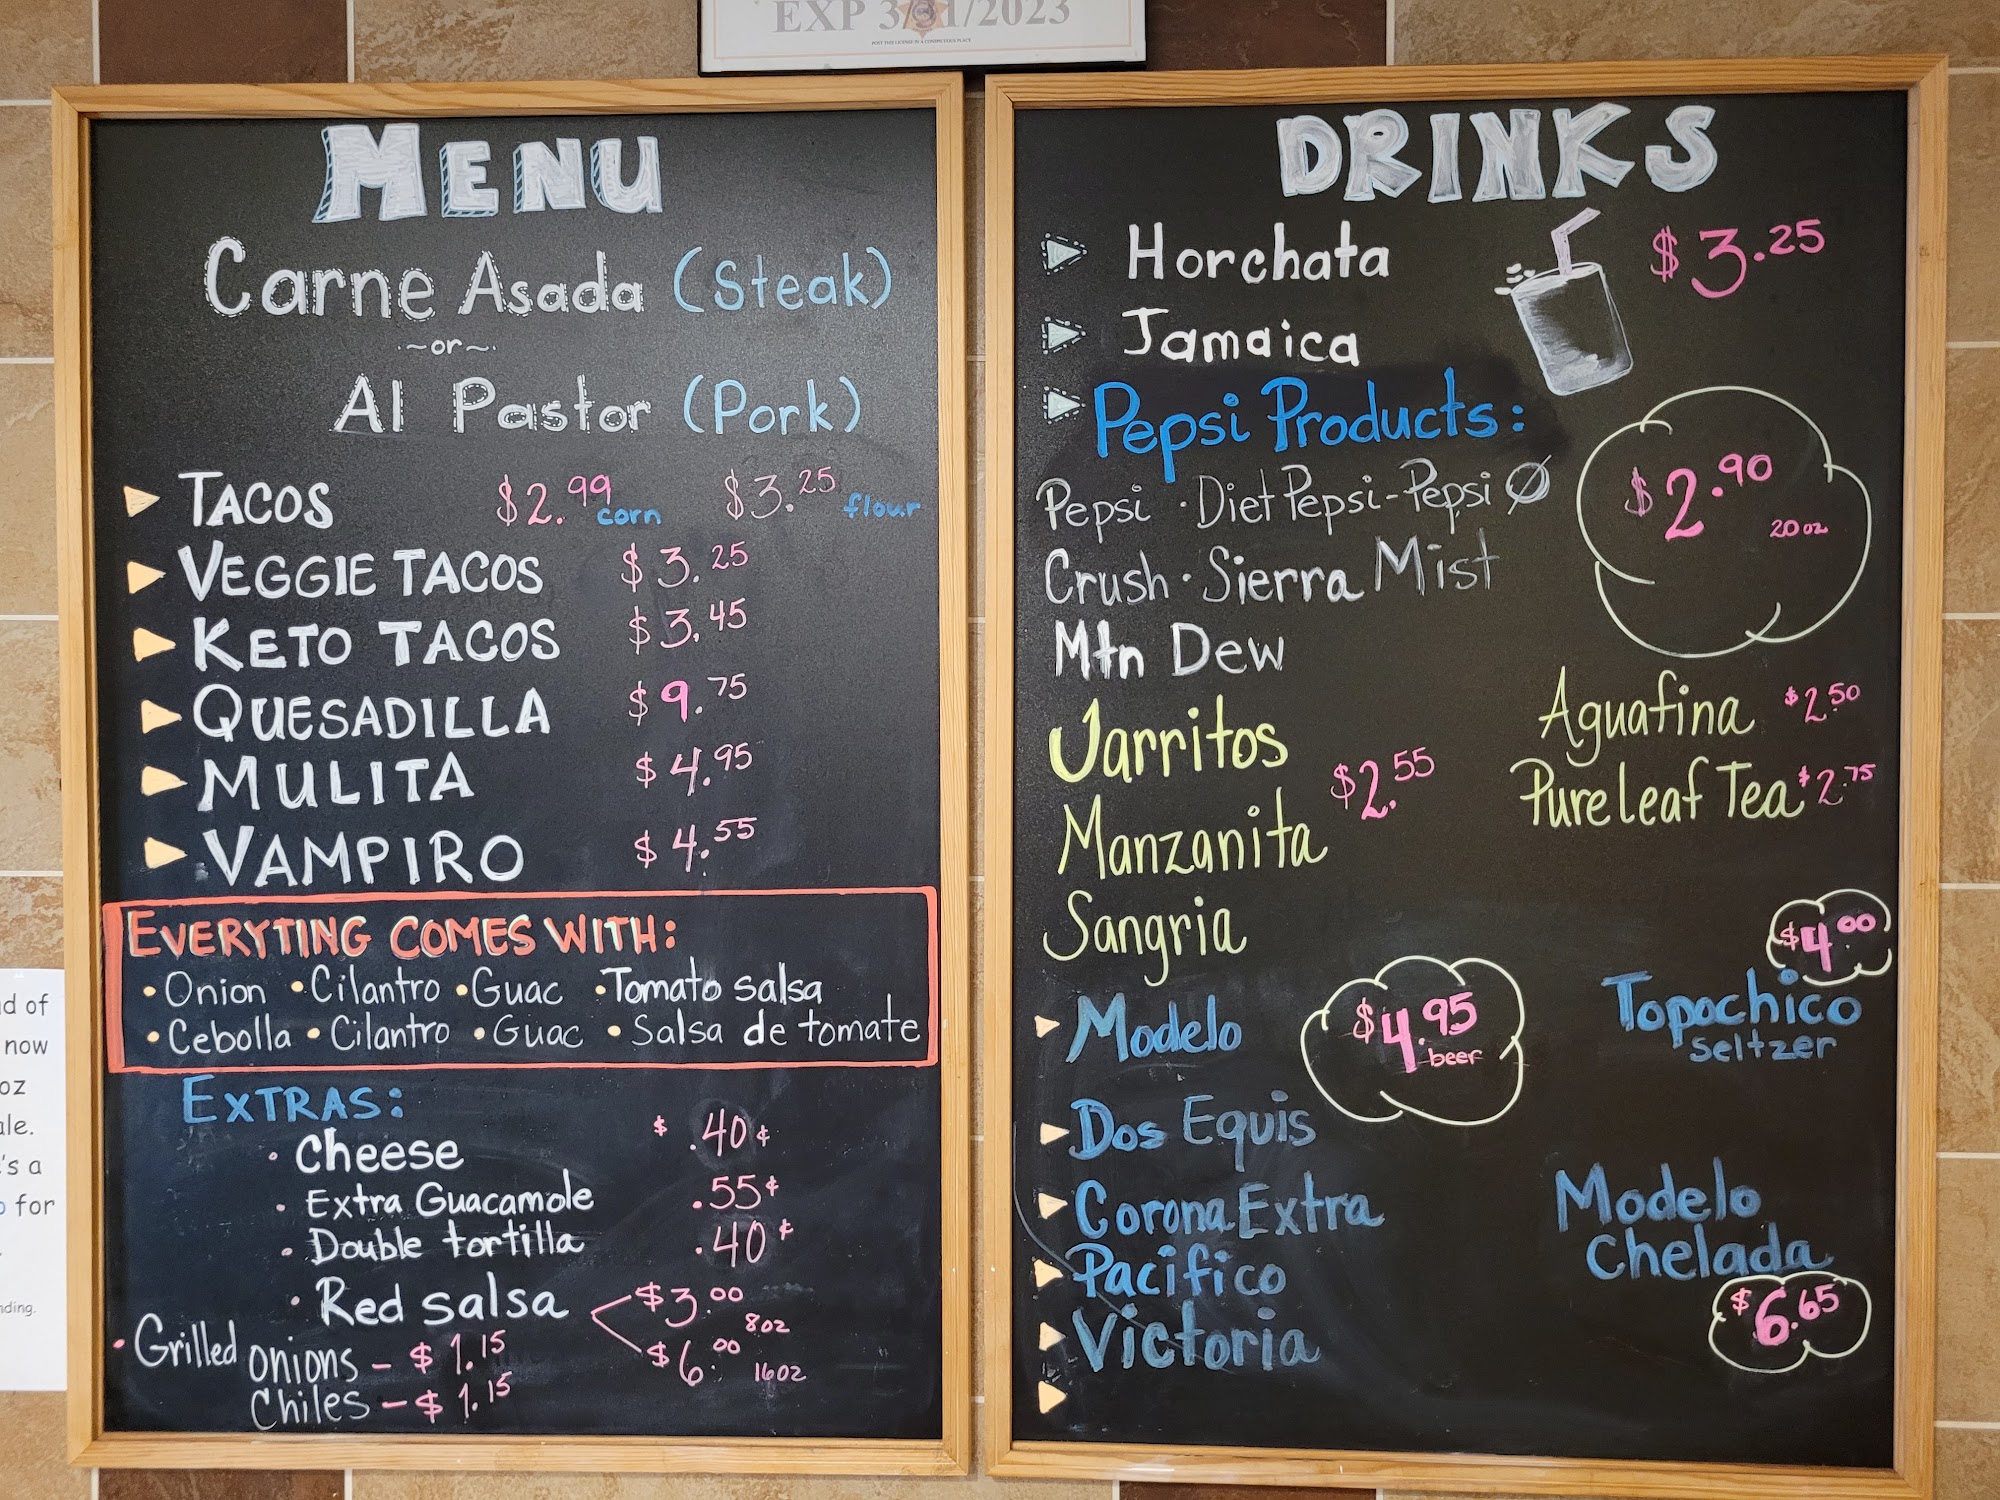 EXP 3/31/2023
POST THIS LICENSE IN A CONSPICUOUS PLACE
MENU
Carne Asada (Steak)
~or~
Al Pastor (Pork)
TACOS $2.99 corn $3.25 flour
VEGGIE TACOS $3.25
KETO TACOS $3.45
QUESADILLA $9.75
MULITA $4.95
VAMPIRO $4.55
EVERYTING COMES WITH:
• Onion • Cilantro • Guac • Tomato salsa
• Cebolla • Cilantro • Guac • Salsa de tomate
EXTRAS:
• Cheese $ .40¢
• Extra Guacamole .55¢
• Double tortilla .40¢
• Red salsa $3.00 8oz
$6.00 16oz
• Grilled onions - $1.15
Chiles - $1.15
DRINKS
Horchata $3.25
Jamaica
Pepsi Products:
Pepsi · Diet Pepsi - Pepsi Ø
$2.90 20oz
Crush · Sierra Mist
Mtn Dew
Jarritos $2.55
Manzanita
Sangria
Aguafina $2.50
Pureleaf Tea $2.75
Modelo $4.95 beer
Dos Equis
Corona Extra
Pacifico
Victoria
$4.00
Topochico
seltzer
Modelo
Chelada
$6.65
d of
now
oz
le.
's a
for
nding.